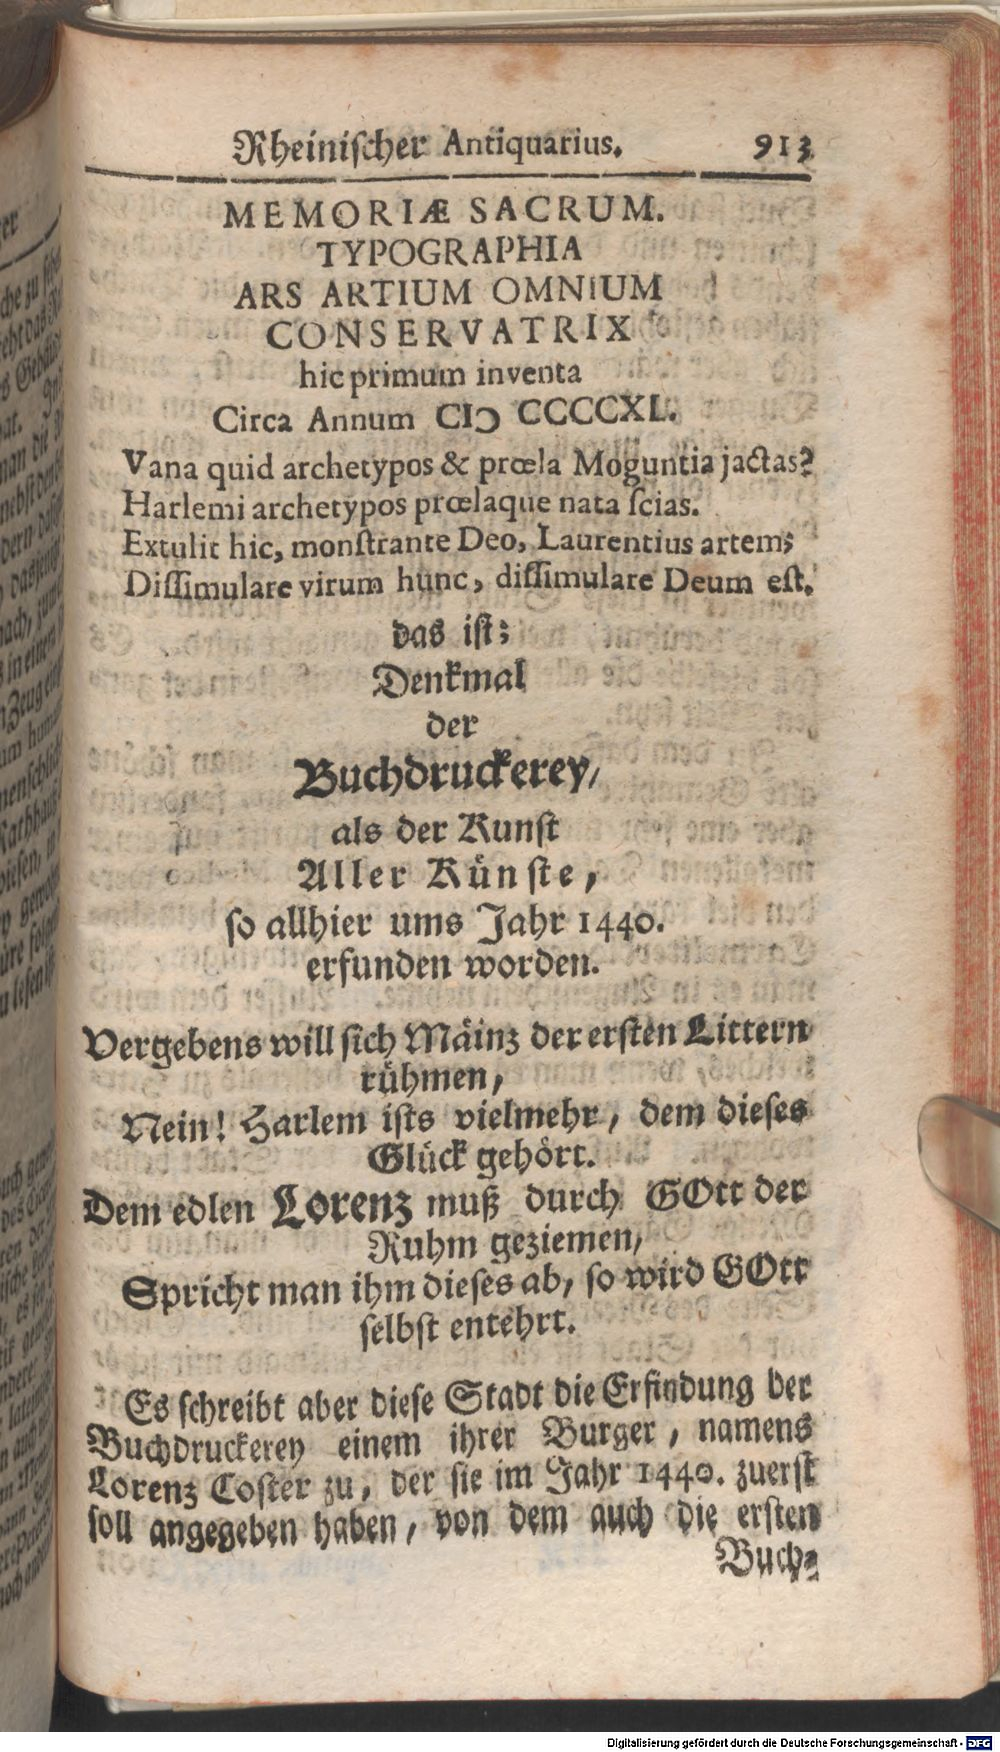 Rheinischer Antiquarius. 913
MEMORIÆ SACRUM.
TYPOGRAPHIA
ARS ARTIUM OMNIUM
CONSERVATRIX
hic primum inventa
Circa Annum CIↃ CCCCXL.
Vana quid archetypos & prœla Moguntia jactas?
Harlemi archetypos prœlaque nata ſcias.
Extulit hic, monſtrante Deo, Laurentius artem;
Diſſimulare virum hunc, diſſimulare Deum eſt.
das iſt:
Denkmal
der
Buchdruckerey/
als der Kunſt
Aller Künſte,
ſo allhier ums Jahr 1440.
erfunden worden.
Vergebens will ſich Mäinz der erſten Littern
rühmen,
Nein! Harlem iſts vielmehr, dem dieſes
Glück gehört.
Dem edlen Lorenz muß durch GOtt der
Ruhm geziemen,
Spricht man ihm dieſes ab, ſo wird GOtt
ſelbſt entehrt.
Es ſchreibt aber dieſe Stadt die Erfindung der
Buchdruckerey einem ihrer Burger, namens
Lorenz Coſter zu, der ſie im Jahr 1440. zuerſt
ſoll angegeben haben, von dem auch die erſten
Buch-
Digitalisierung gefördert durch die Deutsche Forschungsgemeinschaft - DFG